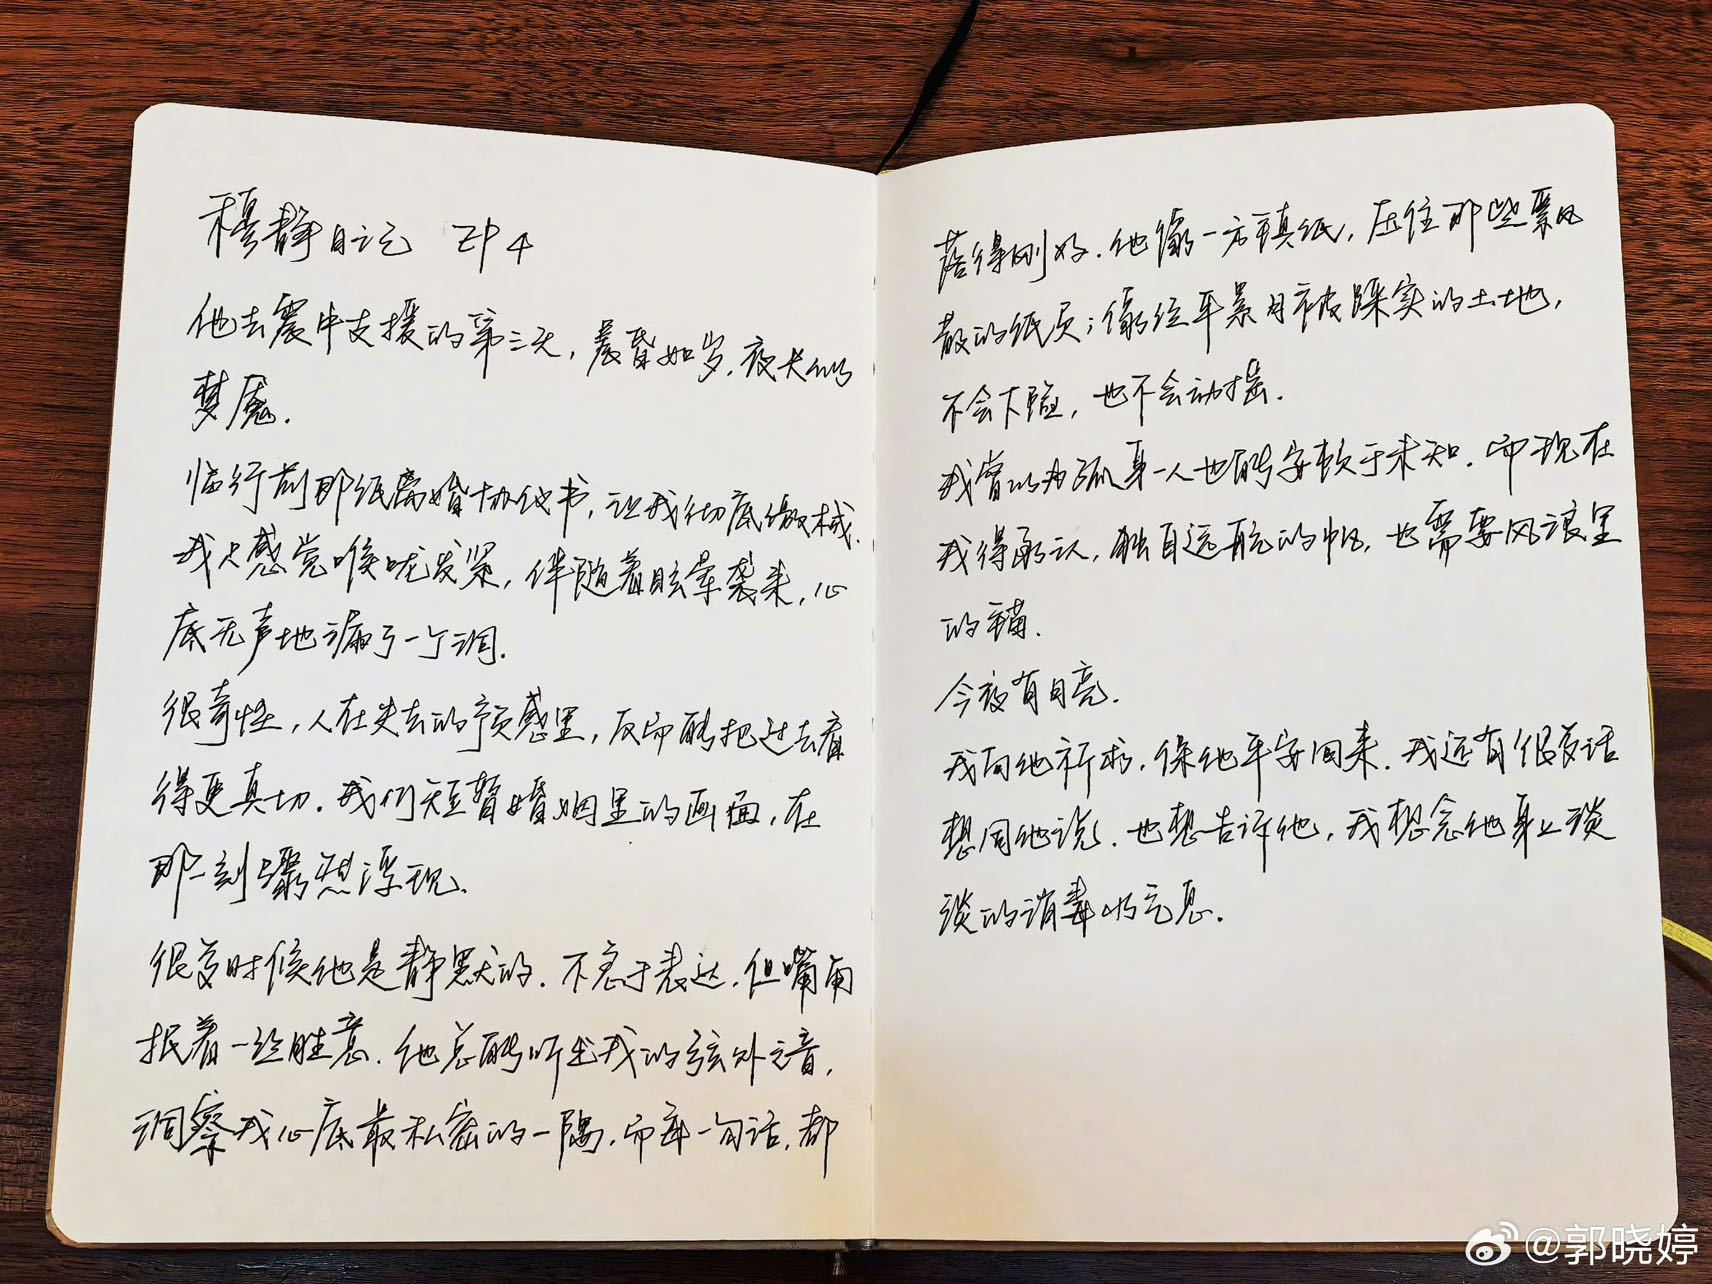 穆静日记 EP4
他去震中支援的第三天，晨昏如岁，夜长如
梦魇.
临行前那纸离婚协议书，让我彻底缴械.
我只感觉喉咙发紧，伴随着眩晕袭来，心
底无声地漏了一个洞.
很奇怪，人在失去的预感里，反而能把过去看
得更真切. 我们短暂婚姻里的画面，在
那一刻骤然浮现.
很多时候他是静默的. 不急于表达，但嘴角
抿着一丝胜意. 他总能听出我的弦外之音，
洞察我心底最私密的一隅，而每一句话，都
落得刚好. 他像一方镇纸，压住那些飘风
散的纸页；像经年累月被踩实的土地，
不会下陷，也不会动摇.
我曾以为孤身一人也能安放于未知. 而现在
我得承认，独自远航的帆，也需要风浪里
的锚.
今夜有月亮.
我向他祈求，保他平安回来. 我还有很多话
想同他说. 也想告诉他，我想念他身上淡
淡的消毒水气息.
@郭晓婷